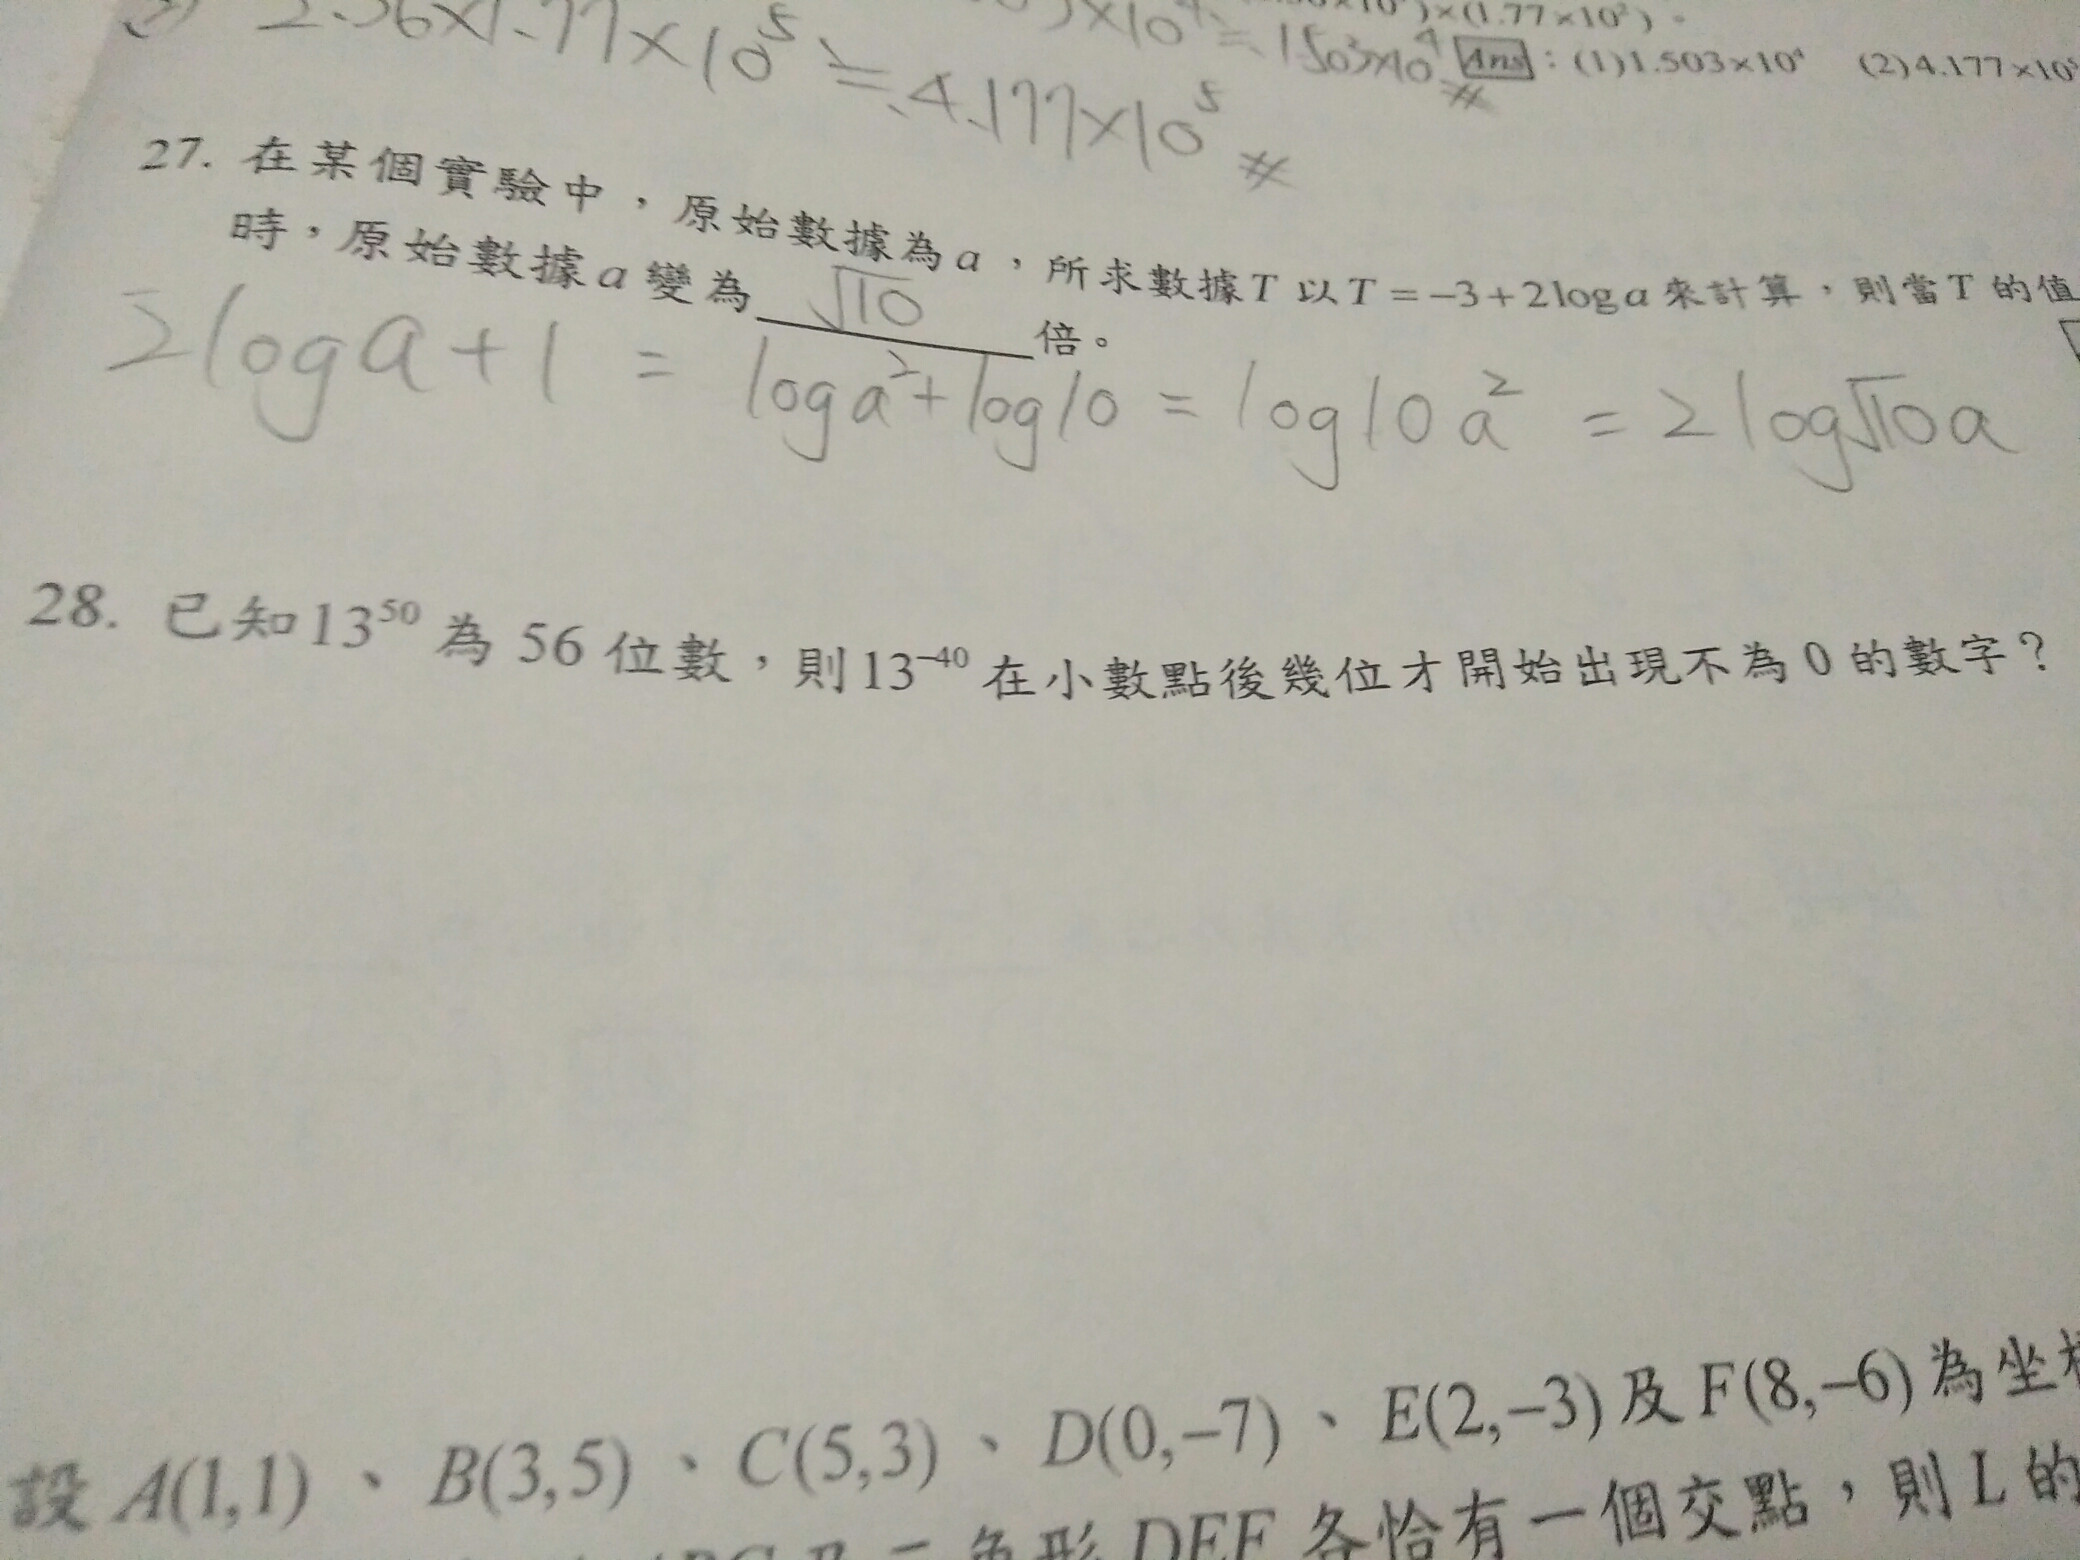 2.36×1.77×10⁵≒4.177×10⁵ #
≒1.503×10⁴ #
Ans：(1)1.503×10⁴ (2)4.177×10⁵
27. 在某個實驗中，原始數據為a，所求數據T以T=−3+2log a來計算，則當T的值
時，原始數據a變為 √10 倍。
2log a+1 = log a²+log10 = log10a² = 2log√10a
28. 已知13⁵⁰為 56 位數，則13⁻⁴⁰在小數點後幾位才開始出現不為 0 的數字？
設 A(1,1)、B(3,5)、C(5,3)、D(0,−7)、E(2,−3)及F(8,−6)為坐
角形 DEF 各恰有一個交點，則 L 的